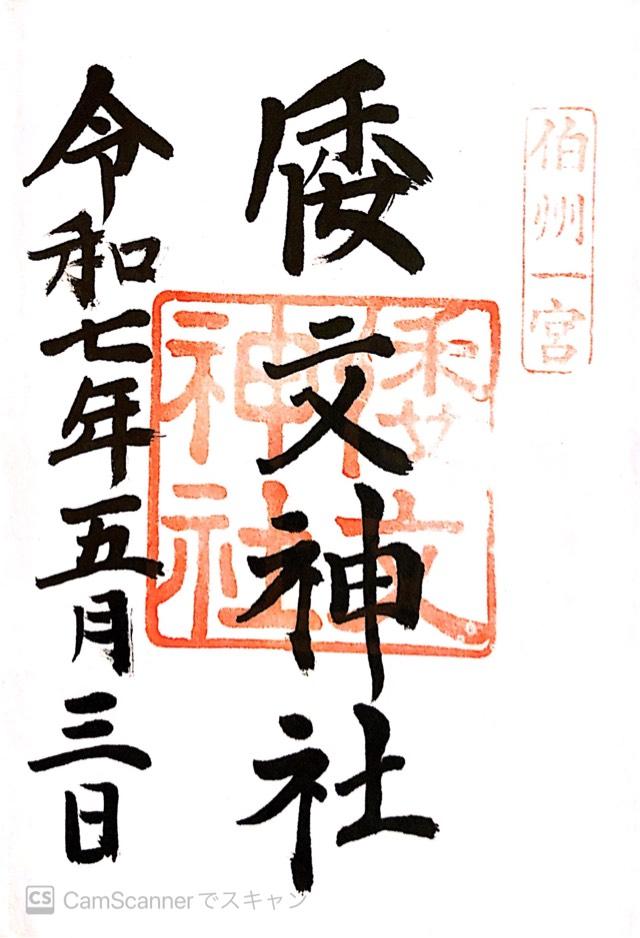 伯州一宮
倭文神社
倭文
神社
令和七年五月三日
CS CamScannerでスキャン